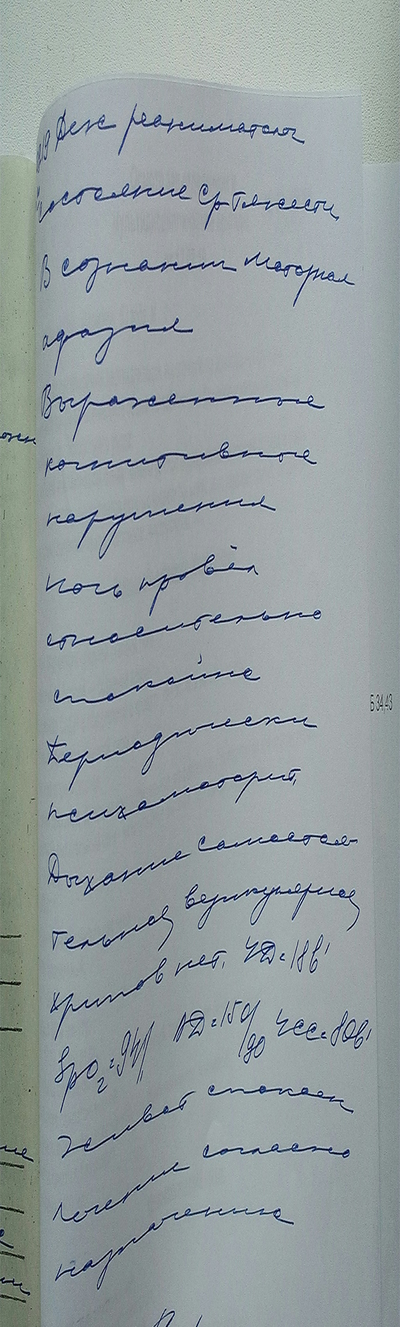 Деж реаниматолог
Состояние ср тяжести
В сознании моторная
афазия
Выраженные
когнитивные
нарушения
Ночь провёл
относительно
спокойно
Периодически
психомоторит,
Дыхание самостоя-
тельное, везикулярное,
Хрипов нет. ЧД=18в'
SpO2=94% АД=150/90 ЧСС=80в'
Живот спокоен
Лечение согласно
назначению
Б 34,43